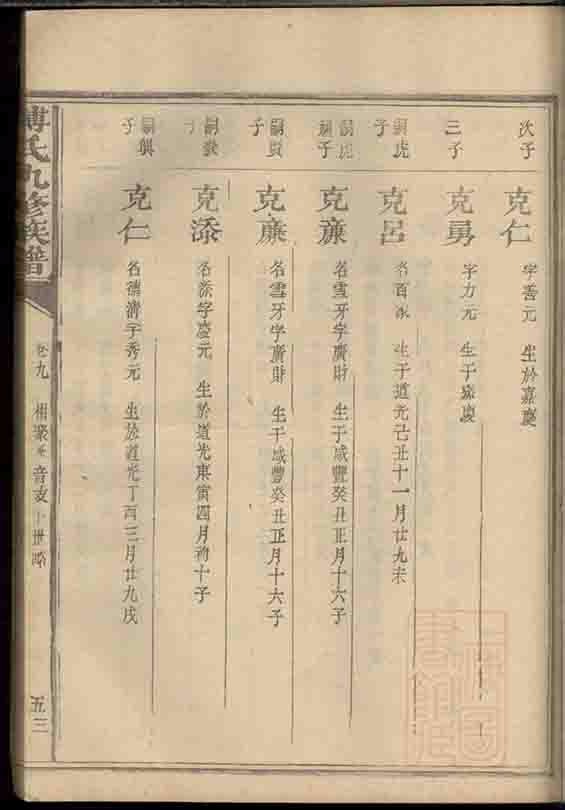 次子
克仁
字善元 生於嘉慶
三子
克勇
字力元 生于嘉慶
嗣虎子
克呂
名百 生于道光己丑十一月廿九未
嗣虎嗣子
克廉
名雪牙字廣財 生于咸豐癸丑正月十六子
嗣賢子
克廉
名雪牙字廣財 生于咸豐癸丑正月十六子
嗣發子
克添
名添字慶元 生於道光庚寅四月初十子
嗣興子
克仁
名德清字秀元 生於道光丁酉三月廿九戌
傅氏九修族譜
卷九 音支 十世
五三